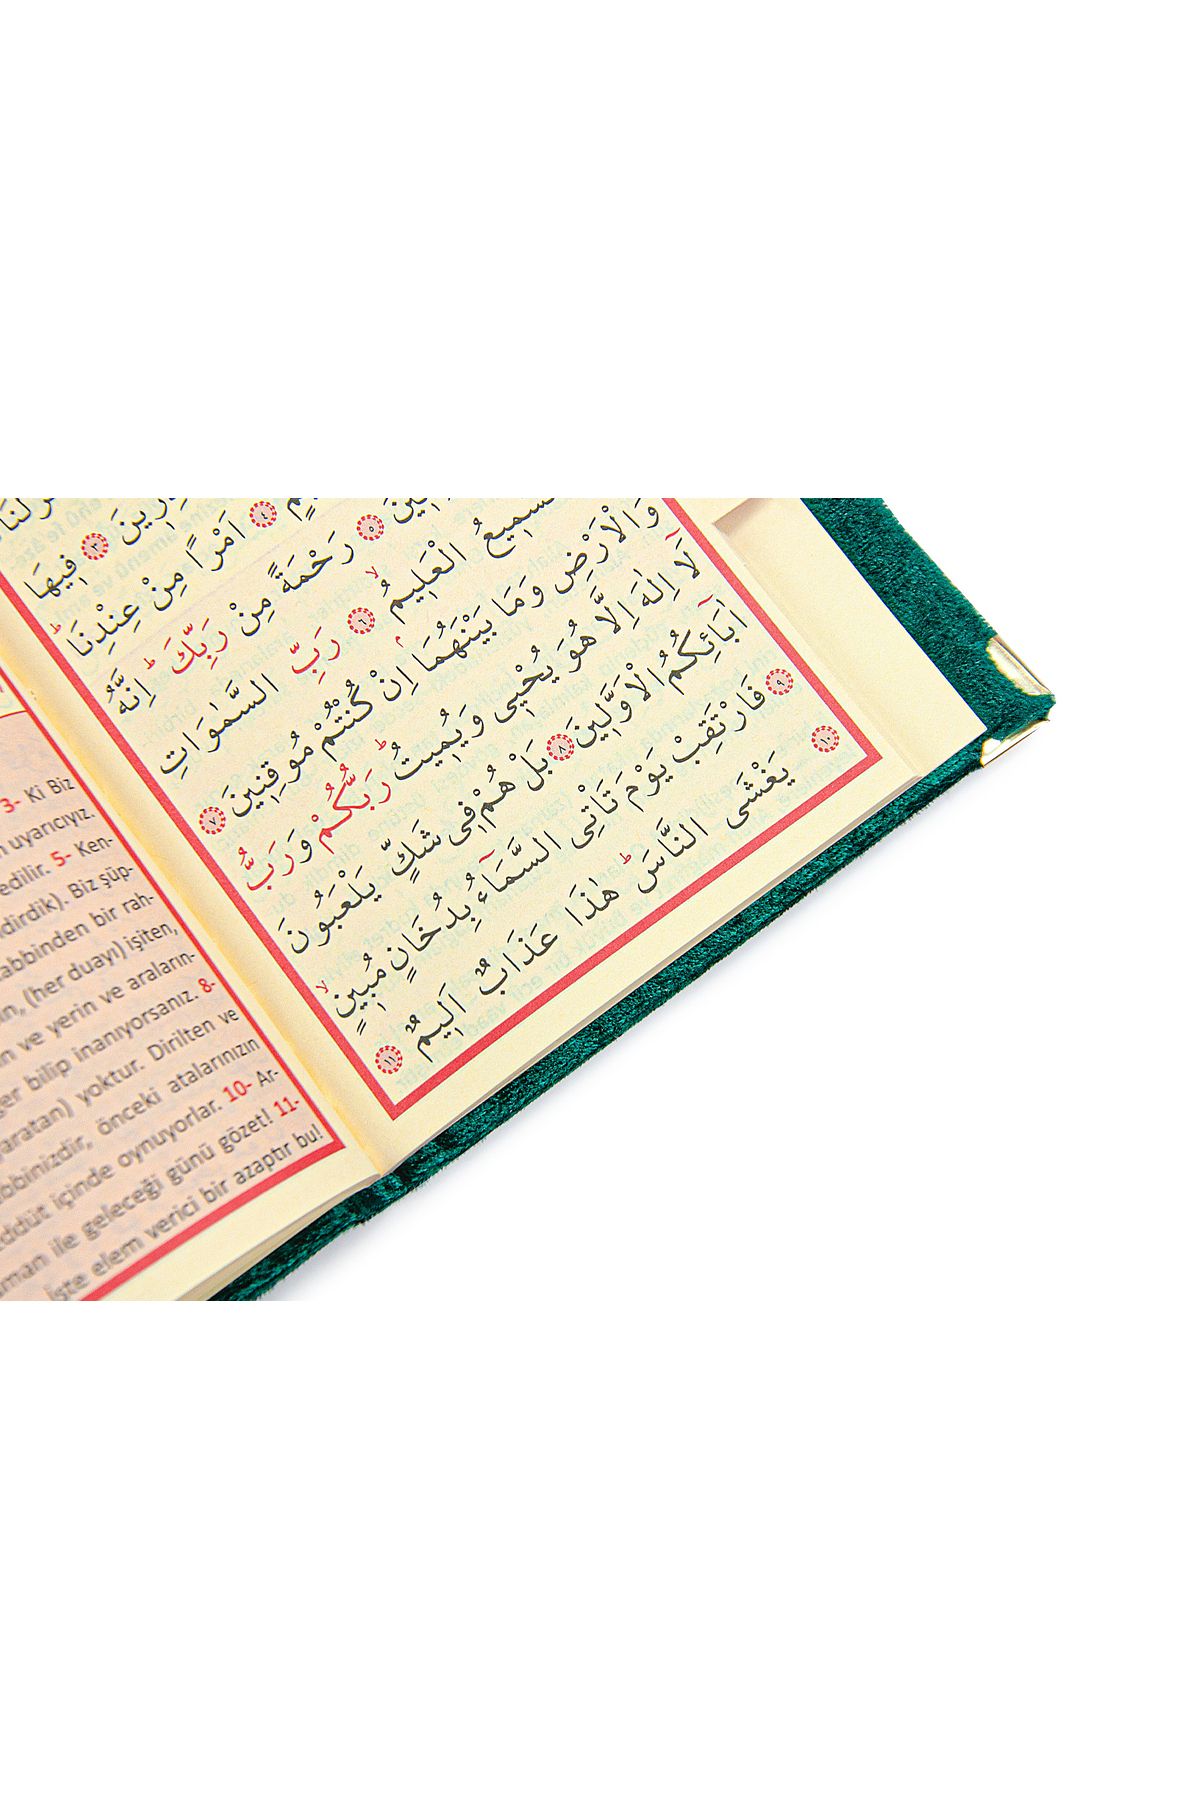 فِيهَا
اَمْرًا مِنْ عِنْدِنَا
رَحْمَةً مِنْ رَبِّكَ اِنَّهُ
السَّمِيعُ الْعَلِيمُ ٦ رَبِّ السَّمٰوَاتِ
وَالْاَرْضِ وَمَا بَيْنَهُمَا اِنْ كُنْتُمْ مُوقِنِينَ ٧
لَٓا اِلٰهَ اِلَّا هُوَ يُحْيٖى وَيُمٖيتُ رَبُّكُمْ وَرَبُّ
اٰبَٓائِكُمُ الْاَوَّلٖينَ ٨ بَلْ هُمْ فٖى شَكٍّ يَلْعَبُونَ
٩ فَارْتَقِبْ يَوْمَ تَاْتِى السَّمَٓاءُ بِدُخَانٍ مُبٖينٍ
١٠ يَغْشَى النَّاسَ هٰذَا عَذَابٌ اَلٖيمٌ ١١
3- Ki Biz
uyarıcıyız.
edilir. 5- Ken-
dirdik). Biz şüp-
Rabbinden bir rah-
(her duayı) işiten,
ve yerin ve araların-
bilip inanıyorsanız. 8-
yaratan) yoktur. Dirilten ve
Rabbinizdir, önceki atalarınızın
içinde oynuyorlar. 10- Ar-
ile geleceği günü gözet! 11-
İşte elem verici bir azaptır bu!